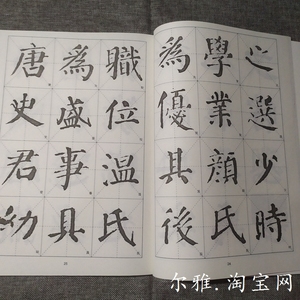 之選少時
學業顏氏
為優其後
職位温氏
為盛事具
唐史君幼
尔雅.淘宝网